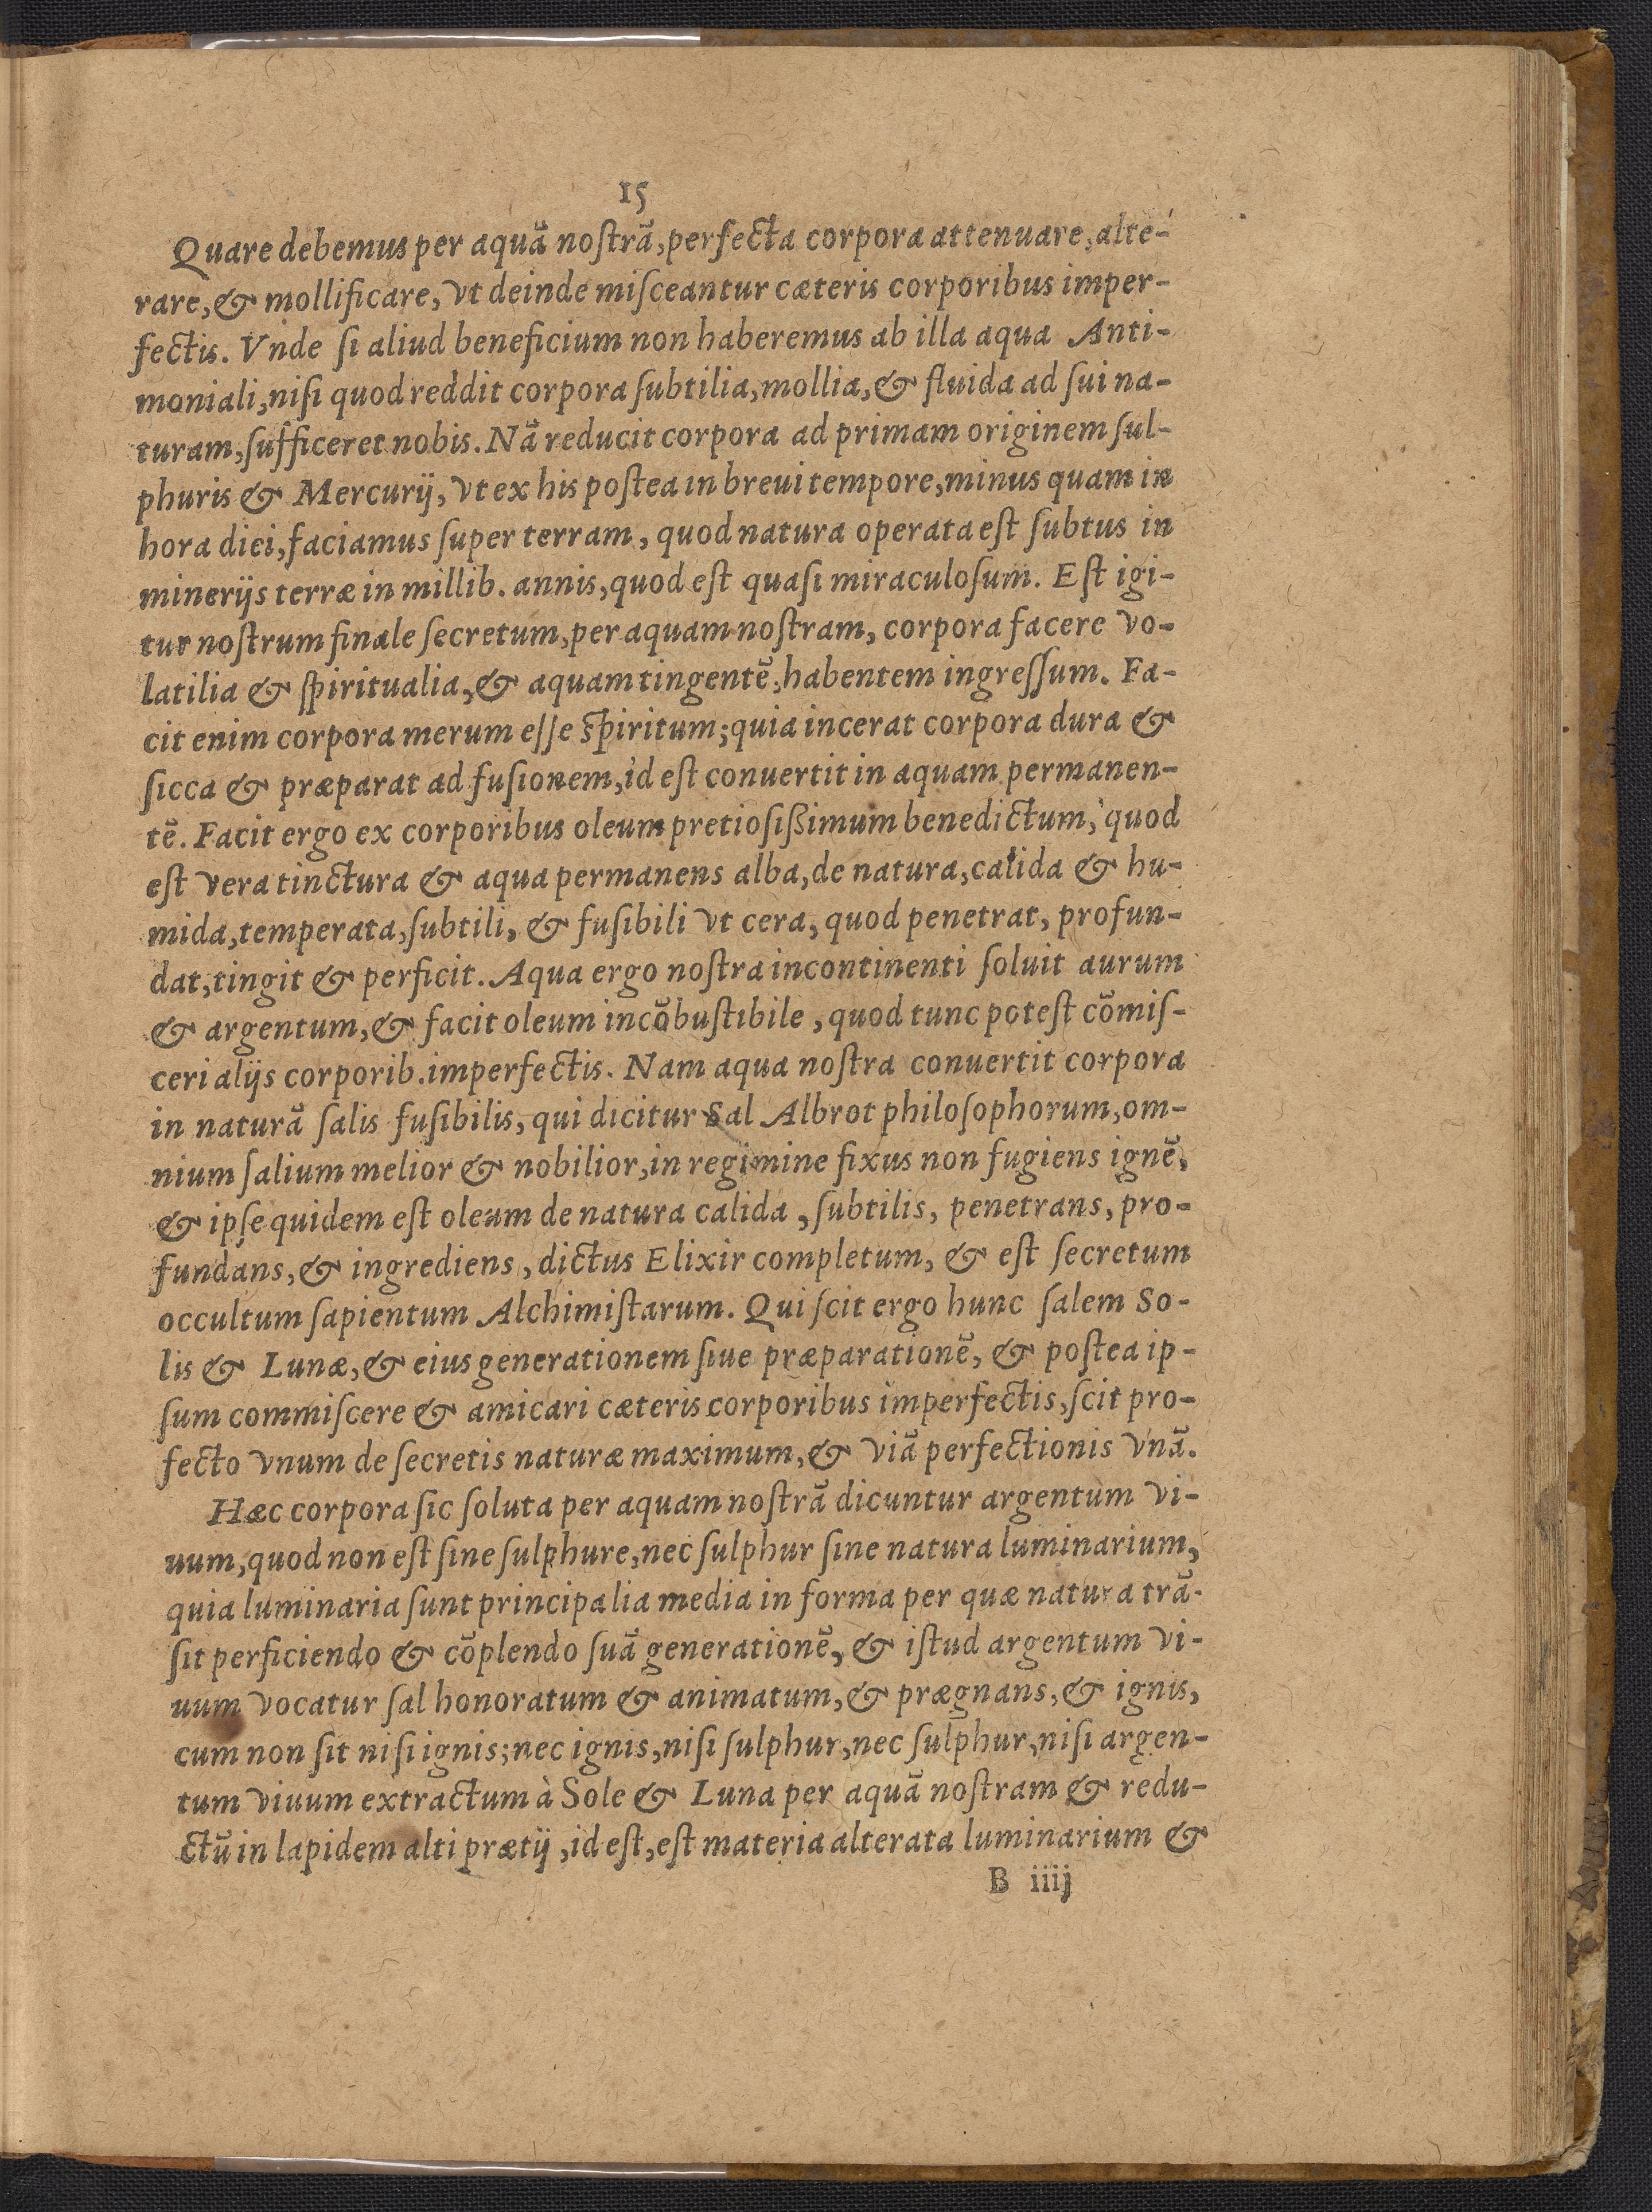 15
Quare debemus per aquã noſtrã, perfecta corpora attenuare, alte-
rare, & mollificare, vt deinde miſceantur cæteris corporibus imper-
fectis. Vnde ſi aliud beneficium non haberemus ab illa aqua Anti-
moniali, niſi quod reddit corpora ſubtilia, mollia, & fluida ad ſui na-
turam, ſufficeret nobis. Nã reducit corpora ad primam originem ſul-
phuris & Mercurij, vt ex his poſtea in breui tempore, minus quam in
hora diei, faciamus ſuper terram, quod natura operata eſt ſubtus in
minerijs terræ in millib. annis, quod eſt quaſi miraculoſum. Eſt igi-
tur noſtrum finale ſecretum, per aquam noſtram, corpora facere vo-
latilia & ſpiritualia, & aquam tingentẽ, habentem ingreſſum. Fa-
cit enim corpora merum eſſe ſpiritum; quia incerat corpora dura &
ſicca & præparat ad fuſionem, id eſt conuertit in aquam permanen-
tẽ. Facit ergo ex corporibus oleum pretioſiſſimum benedictum, quod
eſt vera tinctura & aqua permanens alba, de natura, calida & hu-
mida, temperata, ſubtili, & fuſibili vt cera, quod penetrat, profun-
dat, tingit & perficit. Aqua ergo noſtra incontinenti ſoluit aurum
& argentum, & facit oleum incõbuſtibile, quod tunc poteſt cõmiſ-
ceri alijs corporib. imperfectis. Nam aqua noſtra conuertit corpora
in naturã ſalis fuſibilis, qui dicitur Sal Albrot philoſophorum, om-
nium ſalium melior & nobilior, in regimine fixus non fugiens ignẽ,
& ipſe quidem eſt oleum de natura calida, ſubtilis, penetrans, pro-
fundans, & ingrediens, dictus Elixir completum, & eſt ſecretum
occultum ſapientum Alchimiſtarum. Qui ſcit ergo hunc ſalem So-
lis & Lunæ, & eius generationem ſiue præparationẽ, & poſtea ip-
ſum commiſcere & amicari cæteris corporibus imperfectis, ſcit pro-
fecto vnum de ſecretis naturæ maximum, & viã perfectionis vnã.
Hæc corpora ſic ſoluta per aquam noſtrã dicuntur argentum vi-
uum, quod non eſt ſine ſulphure, nec ſulphur ſine natura luminarium,
quia luminaria ſunt principalia media in forma per quæ natura trã-
ſit perficiendo & cõplendo ſuã generationẽ, & iſtud argentum vi-
uum vocatur ſal honoratum & animatum, & prægnans, & ignis,
cum non ſit niſi ignis; nec ignis, niſi ſulphur, nec ſulphur, niſi argen-
tum viuum extractum à Sole & Luna per aquã noſtram & redu-
ctũ in lapidem alti prætij, id eſt, eſt materia alterata luminarium &
B iiij